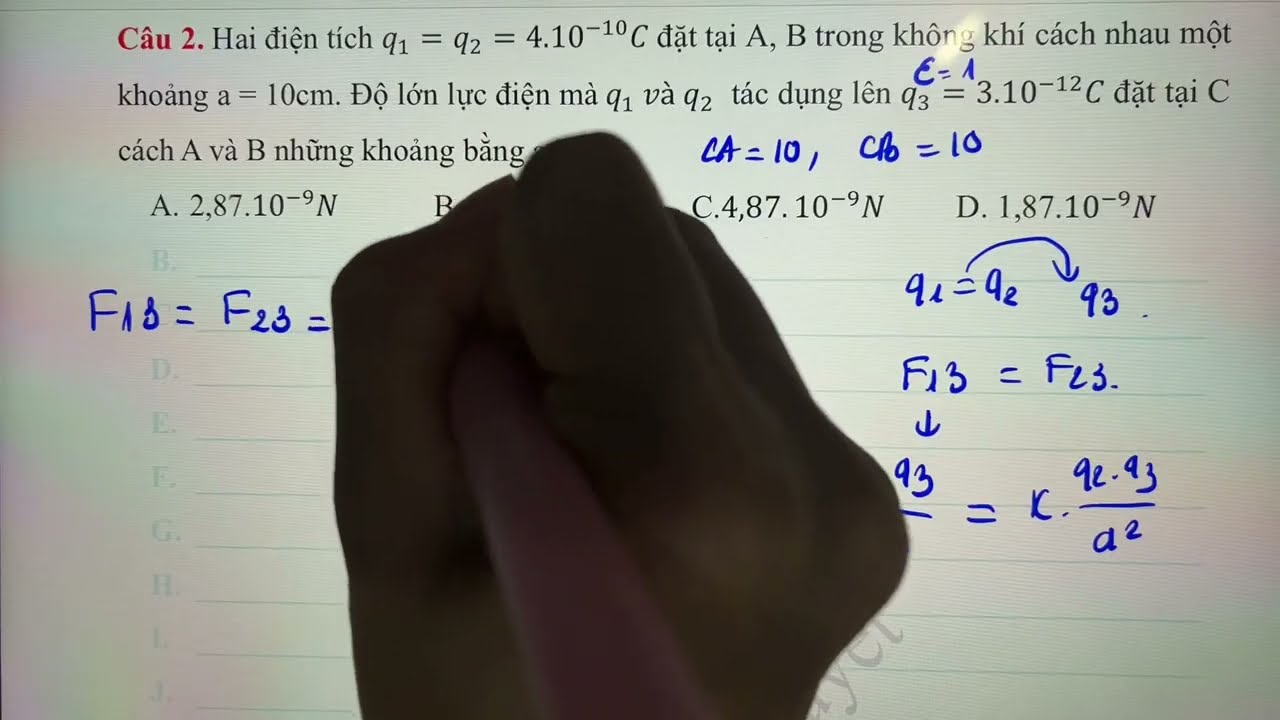 Câu 2. Hai điện tích q₁ = q₂ = 4.10⁻¹⁰C đặt tại A, B trong không khí cách nhau một
ε = 1
khoảng a = 10cm. Độ lớn lực điện mà q₁ và q₂ tác dụng lên q₃ = 3.10⁻¹²C đặt tại C
cách A và B những khoảng bằng
CA = 10, CB = 10
A. 2,87.10⁻⁹N B. C.4,87. 10⁻⁹N D. 1,87.10⁻⁹N
B.
q₁ = q₂ q₃ .
F₁₃ = F₂₃ =
D.
F₁₃ = F₂₃.
↓
E.
F.
q₃ = K. q₂.q₃ / a²
G.
H.
I.
J.